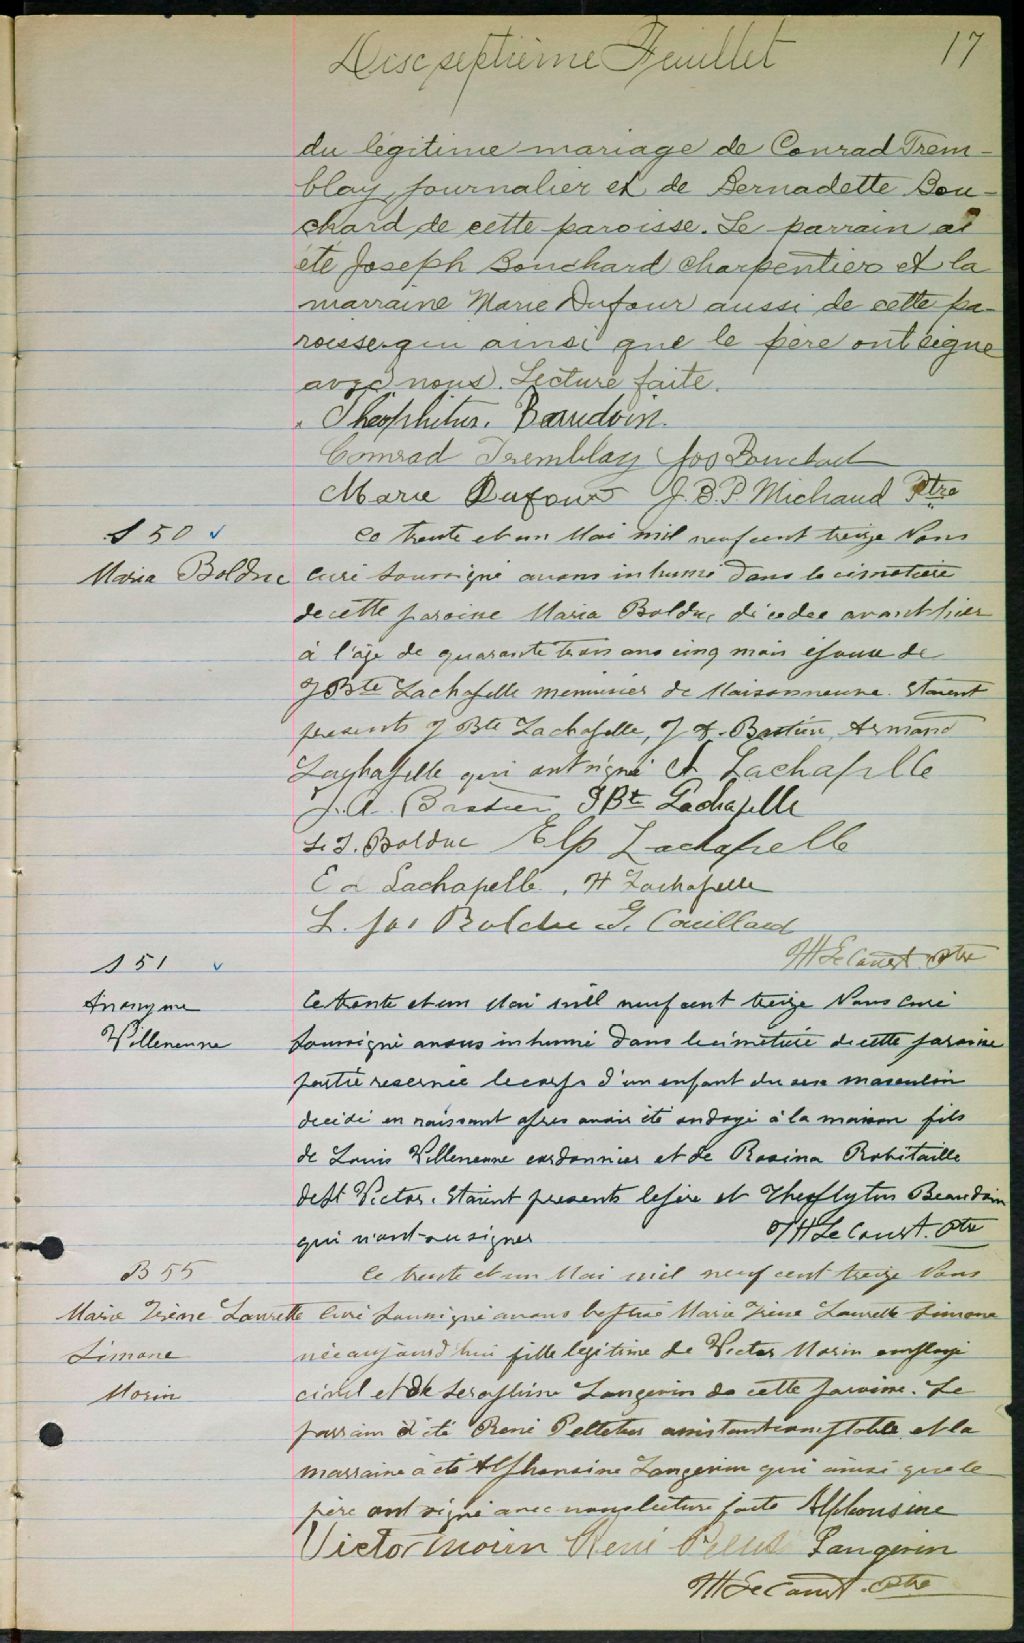 Dixseptième Feuillet 17
du légitime mariage de Conrad Trem-
blay, journalier et de Bernadette Bou-
chard de cette paroisse. Le parrain a
été Joseph Bouchard charpentier et la
marraine Marie Dufour aussi de cette pa-
roisse qui ainsi que le père ont signé
avec nous. Lecture faite.
Théophitus. Beaudoin.
Conrad Tremblay Jos Bouchard
Marie Dufour J.B.P Michaud Ptre
S 50
Maria Bolduc
Ce trente et un Mai mil neuf cent treize Nous
curé soussigné avons inhumé dans le cimetière
de cette paroisse Maria Bolduc décédée avant hier
à l'âge de quarante trois ans cinq mois épouse de
J Bte Lachapelle menuisier de Maisonneuve. Etaient
presents J Bte Lachapelle, J A. Bastien, Armand
Lachapelle qui ont signé A Lachapelle
J. A. Bastien J Bte Lachapelle
L. J. Bolduc Elp Lachapelle
Ed Lachapelle, H Lachapelle
L. Jos Bolduc G. Couillard
Le Court. Ptre
S 51
Anonyme
Villeneuve
Ce trente et un Mai mil neuf cent treize Nous curé
soussigné avons inhumé dans le cimetière de cette paroisse
partie reservée le corps d'un enfant du sexe masculin
decédé en naissant apres avoir été ondoyé à la maison fils
de Louis Villeneuve cordonnier et de Rosina Robitaille
de St Victor. Etaient presents le père et Theophytus Beaudoin
qui n'ont su signer Le Court. Ptre
B 55
Marie Irène Laurette
Simone
Morin
Ce trente et un Mai mil neuf cent treize Nous
Curé soussigné avons baptisé Marie Irène Laurette Simone
née aujourd'hui fille légitime de Victor Morin employé
civil et de Seraphine Langevin de cette paroisse. Le
parrain a été René Pelletier assistant comptable et la
marraine a été Alphonsine Langevin qui ainsi que le
père ont signé avec nous lecture faite Alphonsine
Victor Morin René Langevin
Le Court. Ptre